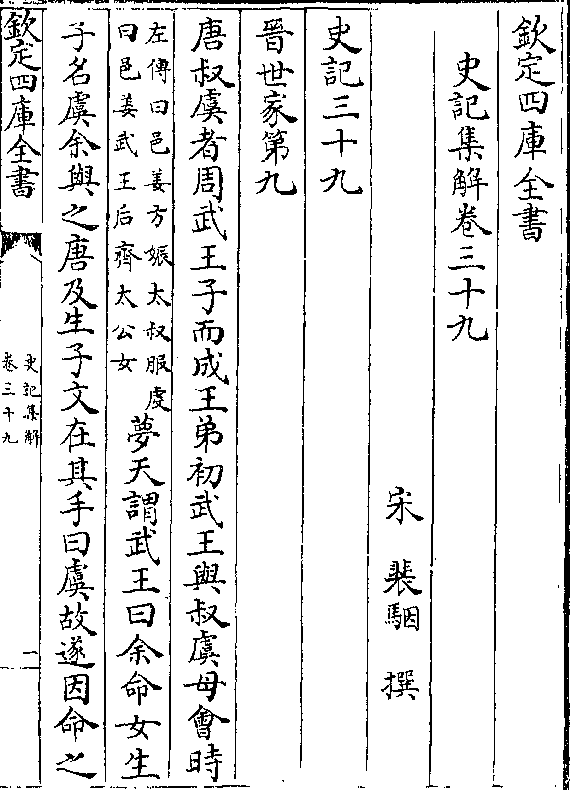 欽定四庫全書
史記集解卷三十九
宋 裴駰 撰
史記三十九
晉世家第九
唐叔虞者周武王子而成王弟初武王與叔虞母會時
左傳曰邑姜方娠太叔服虔
曰邑姜武王后齊太公女
夢天謂武王曰余命女生
子名虞余與之唐及生子文在其手曰虞故遂因命之
欽定四庫全書
史記集解
卷三十九
一